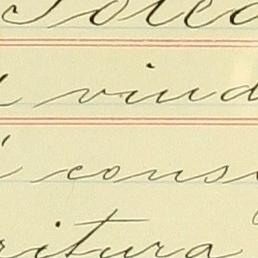 Toled
viud
cons
ritura